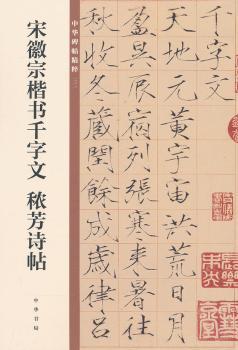 宋徽宗楷书千字文 秾芳诗帖
中华碑帖精粹
中华书局
千字文
天地元黃宇宙洪荒日月
盈昃辰宿列張寒來暑往
秋收冬藏閏餘成歲律呂